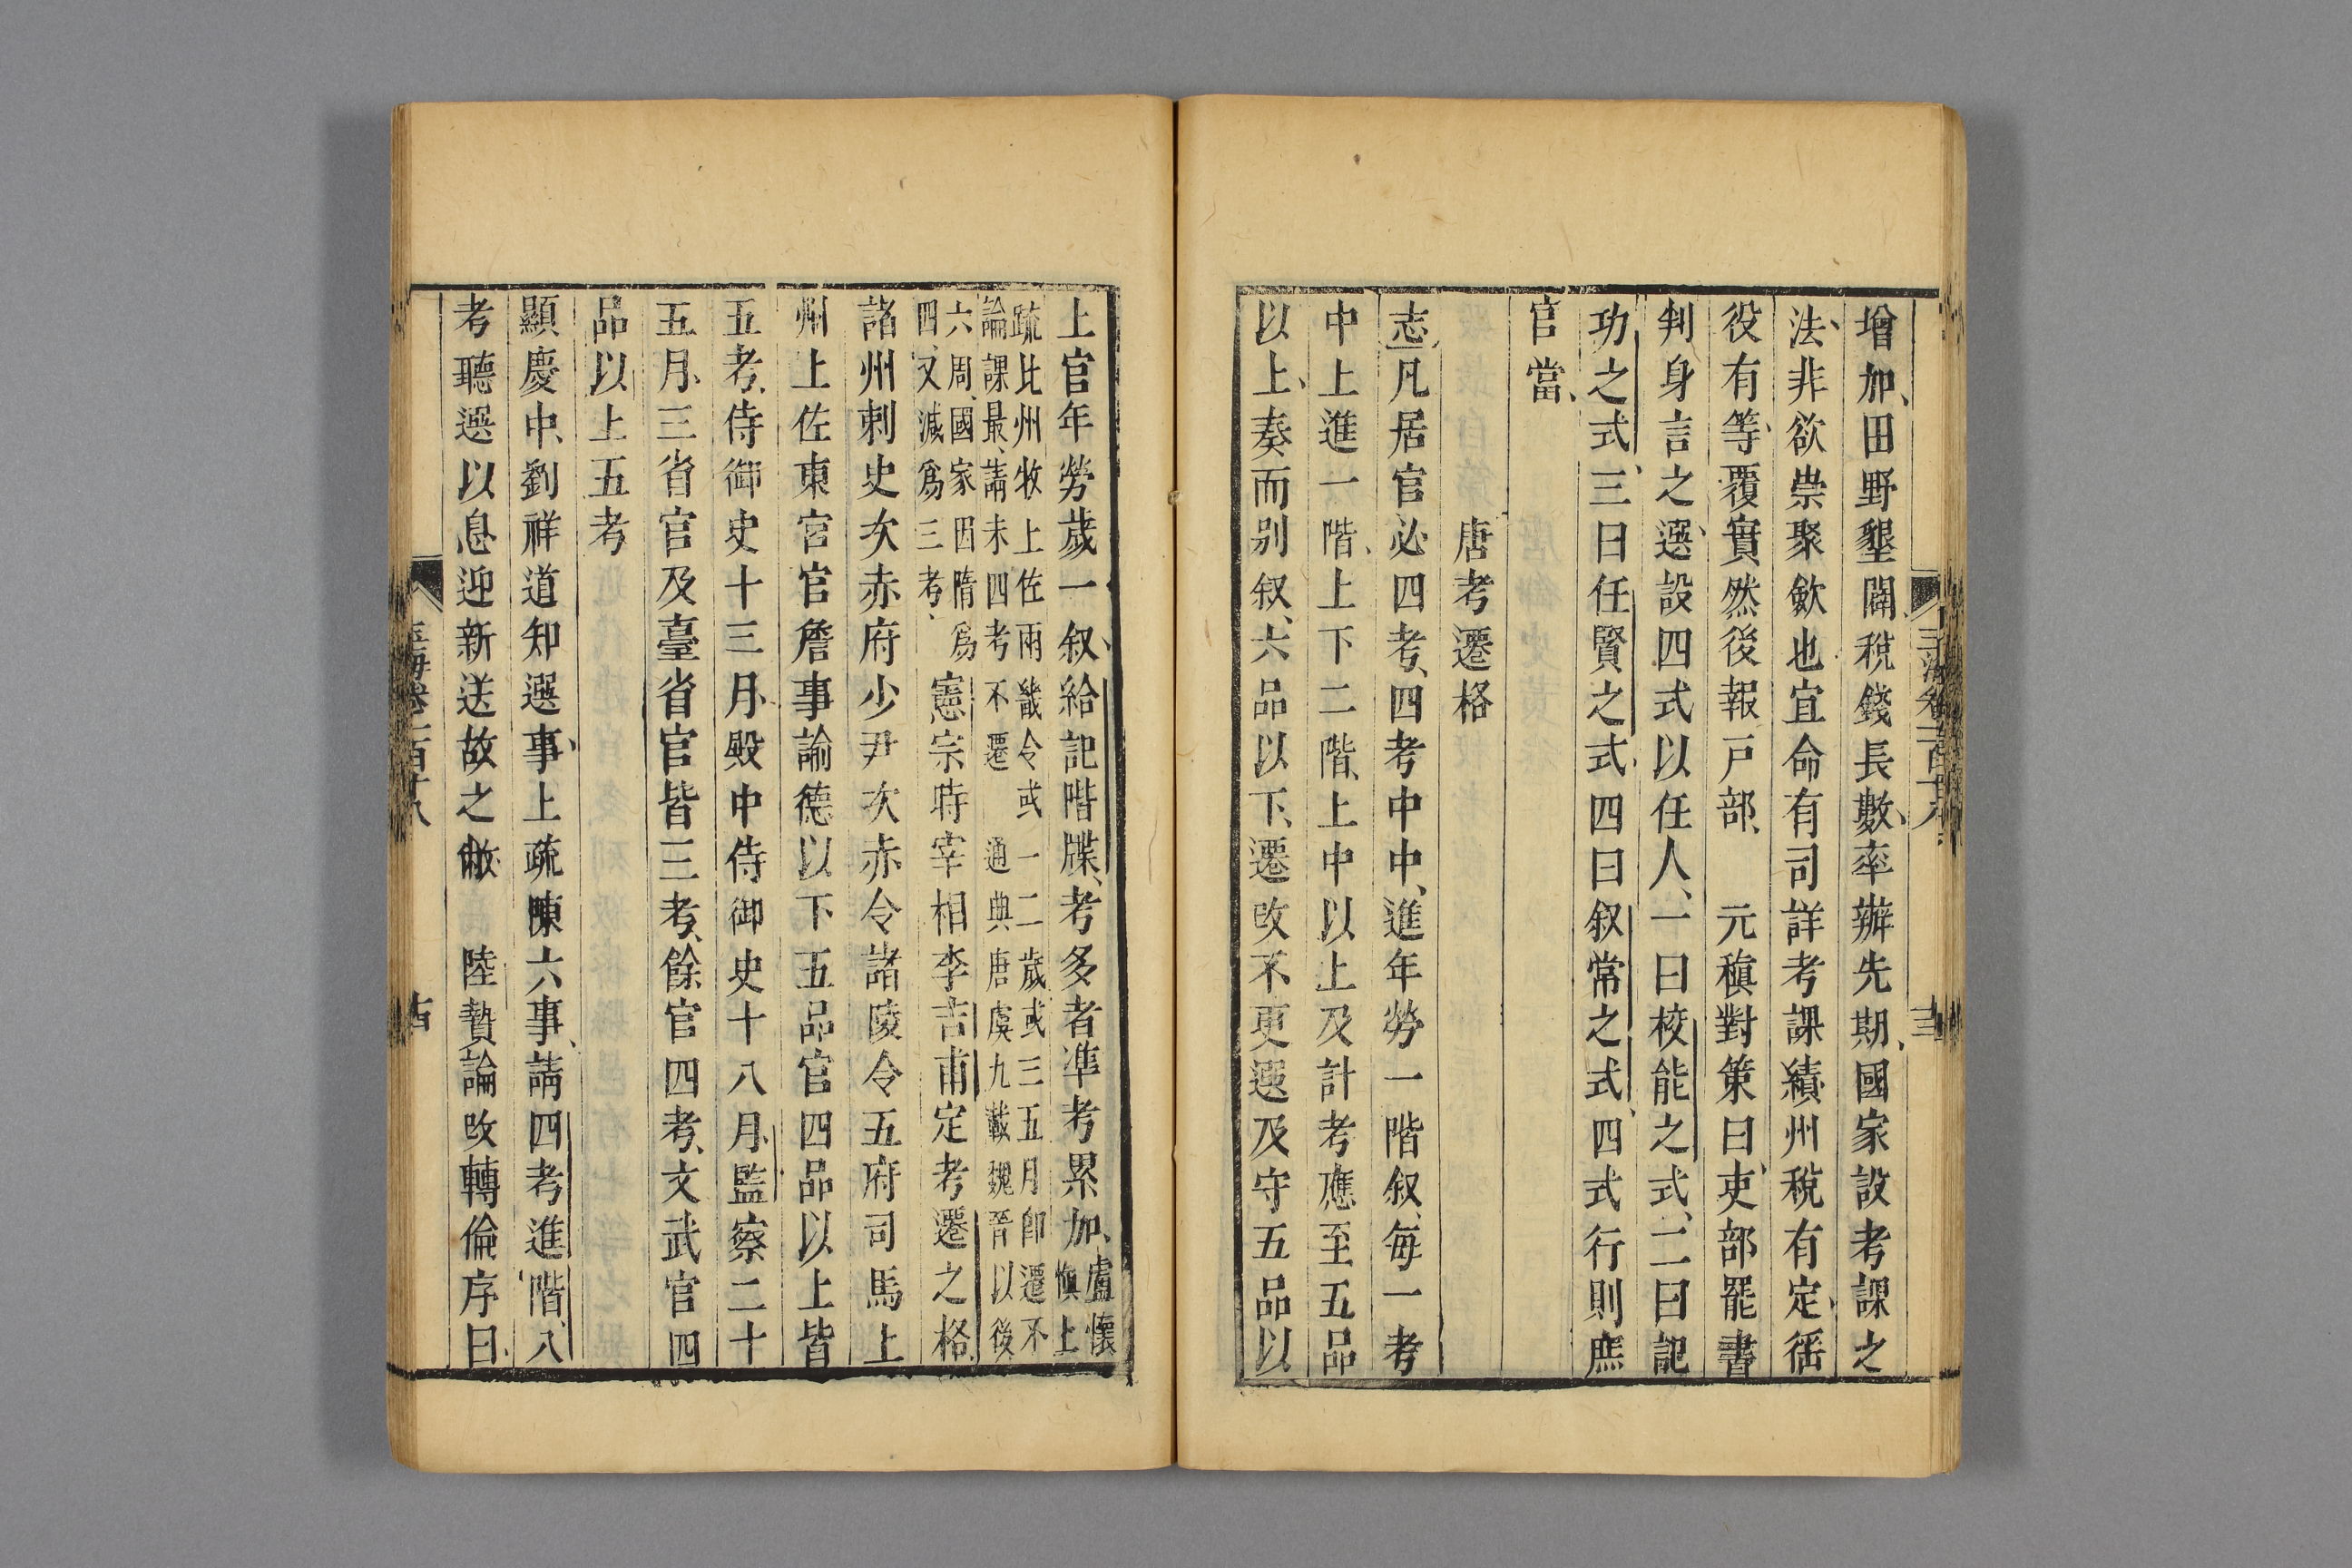 增加田野墾闢稅錢長數率辦先期國家設考課之
法非欲崇聚歛也宜命有司詳考課績州稅有定徭
役有等覆實然後報戸部 元稹對策曰吏部罷書
判身言之選設四式以任人一曰校能之式二曰記
功之式三曰任賢之式四曰叙常之式四式行則庶
官當
唐考遷格
志凡居官必四考四考中中進年勞一階叙每一考
中上進一階上下二階上中以上及計考應至五品
以上奏而别叙六品以下遷改不更選及守五品以
上官年勞歲一叙給記階牒考多者準考累加盧懷
慎上
疏比州牧上佐兩畿令或一二歲或三五月卽遷不
論課最請未四考不遷 通典唐虞九載魏晉以後
六周國家因隋爲
四又減爲三考
憲宗時宰相李吉甫定考遷之格
諸州刺史次赤府少尹次赤令諸陵令五府司馬上
州上佐東宮官詹事諭德以下五品官四品以上皆
五考侍御史十三月殿中侍御史十八月監察二十
五月三省官及臺省官皆三考餘官四考文武官四
品以上五考
顯慶中劉祥道知選事上疏陳六事請四考進階八
考聽選以息迎新送故之敝 陸贄論改轉倫序曰